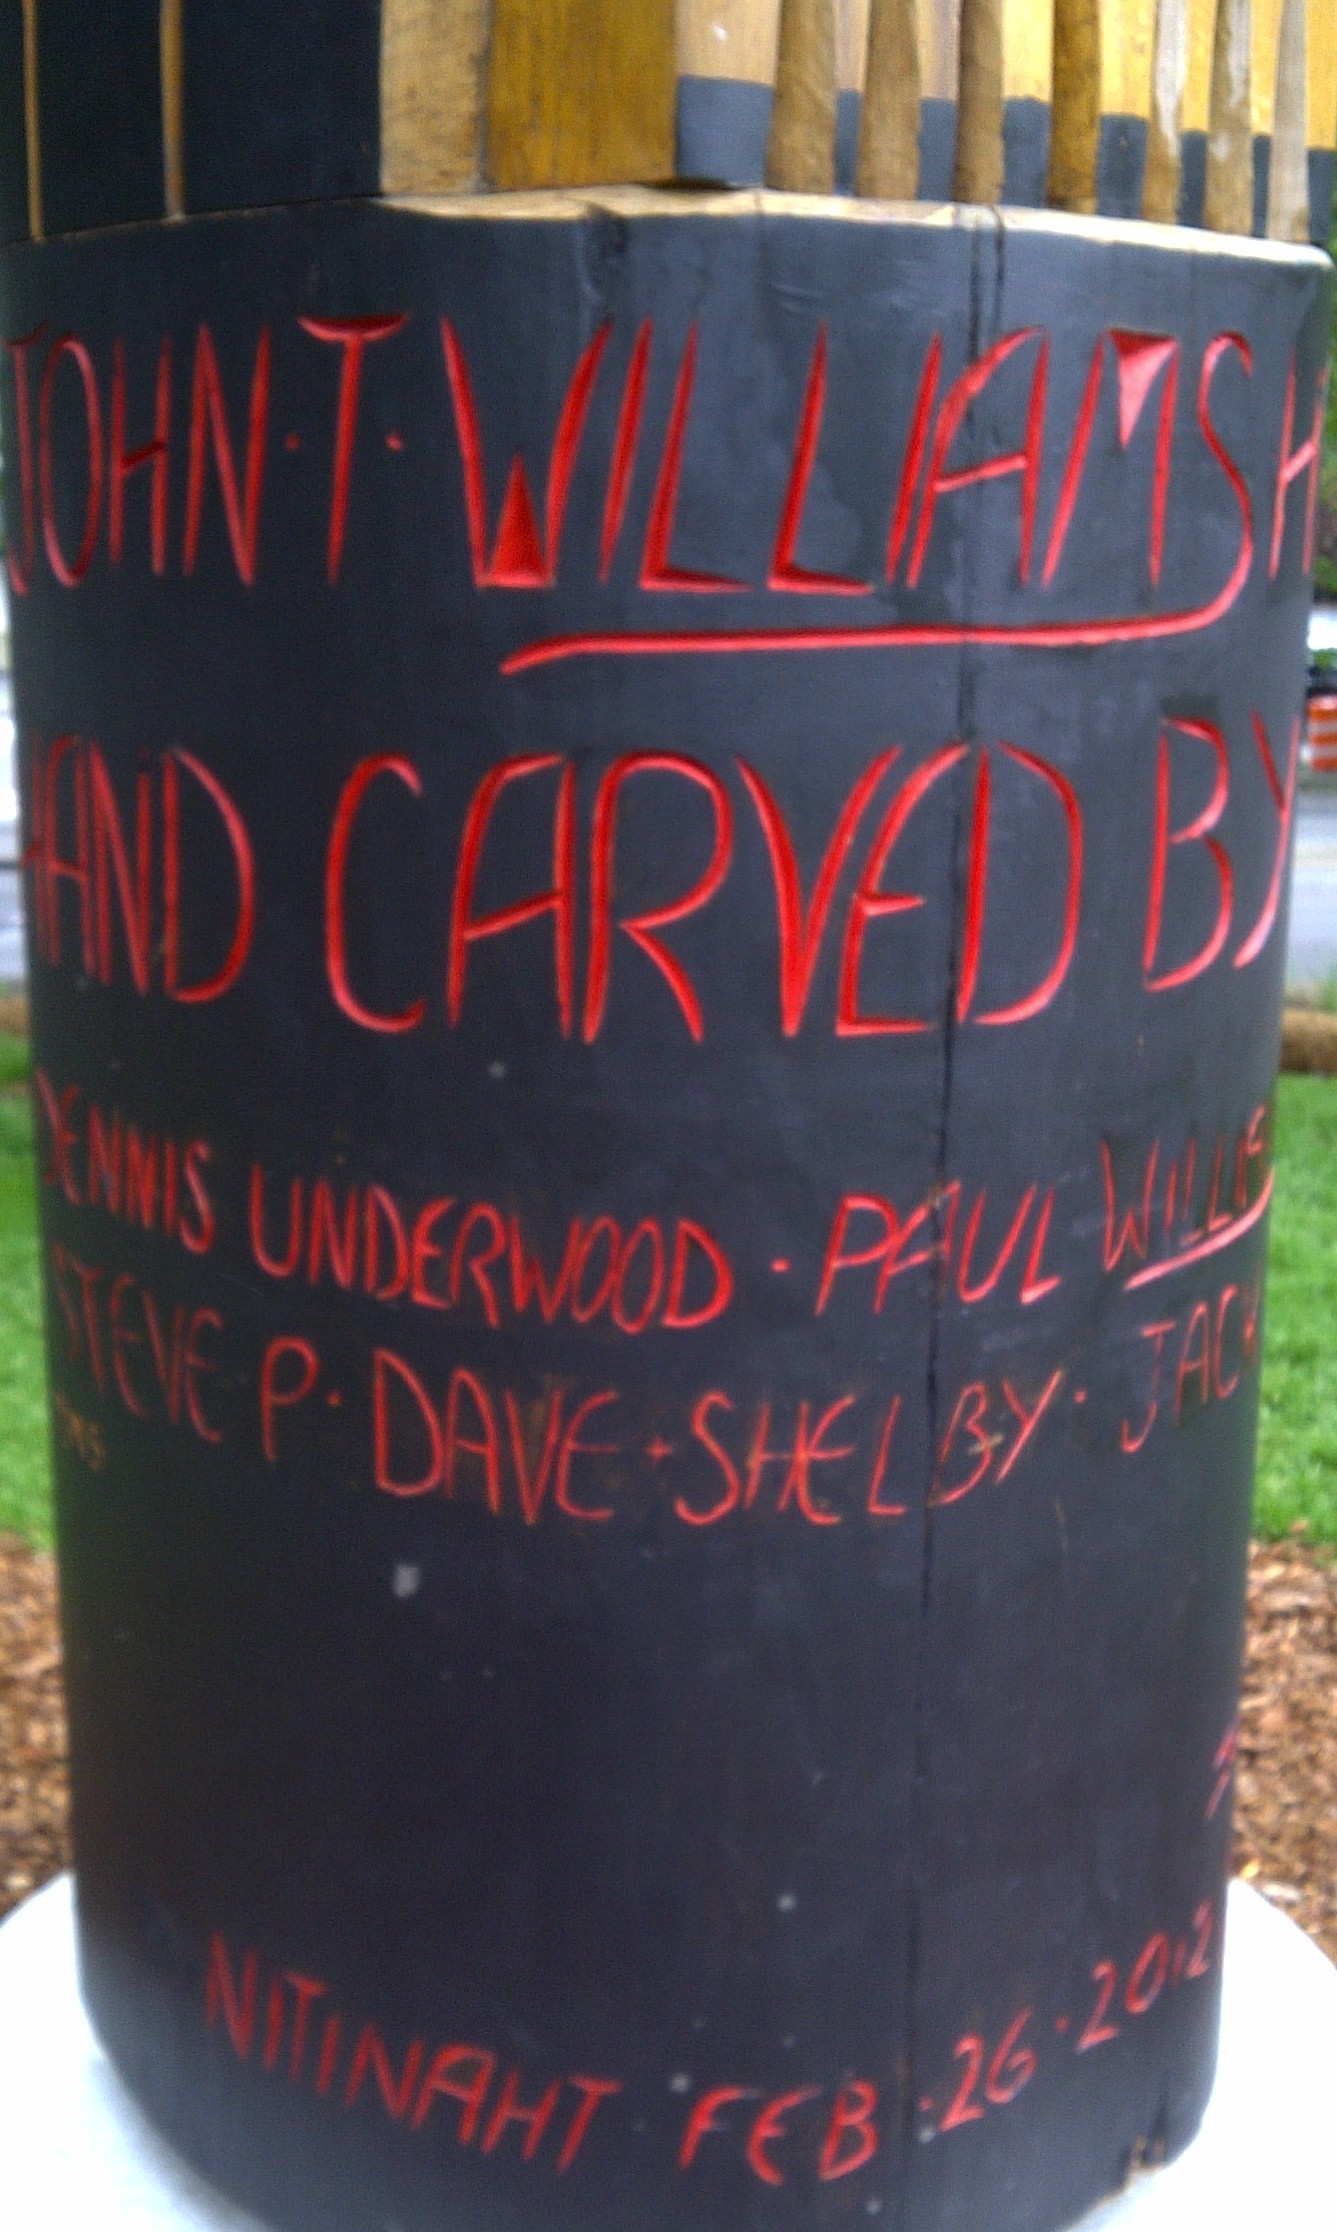 JOHN·T·WILLIAMS H
HAND CARVED BY
DENNIS UNDERWOOD · PAUL WILLIE
STEVE P · DAVE · SHELBY · JACK
NITINAHT FEB · 26 · 2012